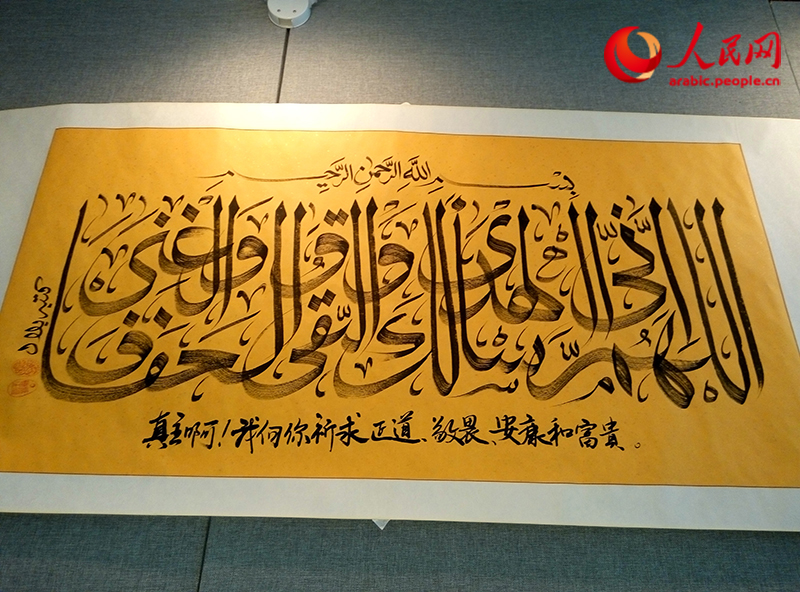 人民网
arabic.people.cn
بِسْمِ اللَّهِ الرَّحْمَنِ الرَّحِيمِ
اللهم إنّي أسألك الهدى والتّقى والعفاف والغنى
真主啊！我向你祈求正道、敬畏、安康和富貴。